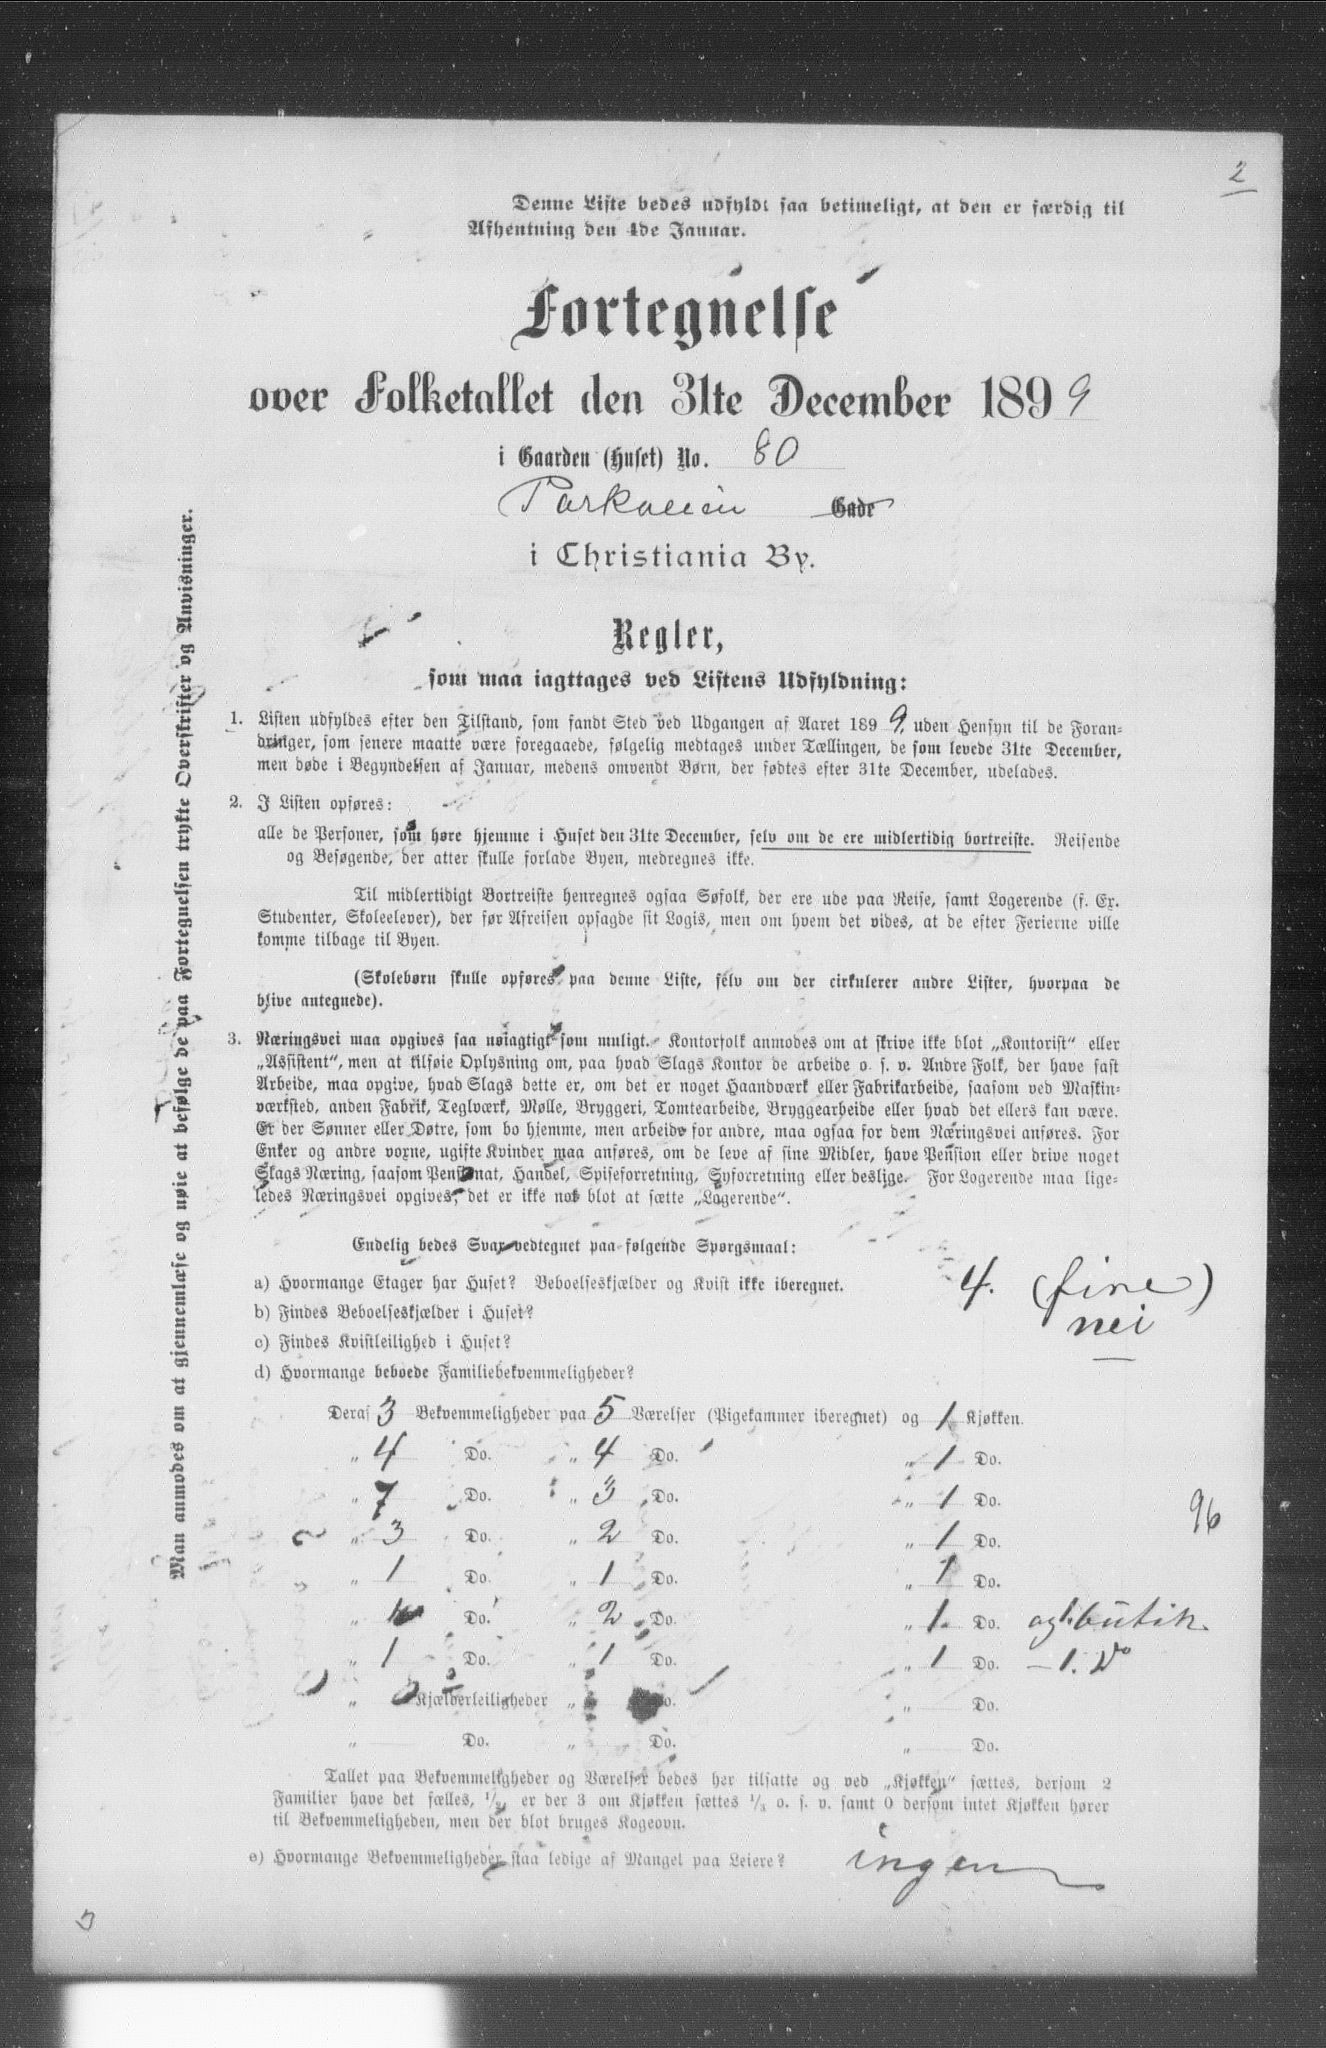 2
Denne Liste bedes udfyldt saa betimeligt, at den er færdig til
Afhentning den 4de Januar.
Fortegnelse
over Folketallet den 31te December 1899
i Gaarden (Huset) No. 80
Parkveien Gade
i Christiania By.
Regler,
som maa iagttages ved Listens Udfyldning:
1. Listen udfyldes efter den Tilstand, som fandt Sted ved Udgangen af Aaret 1899, uden Hensyn til de Foran-
dringer, som senere maatte være foregaaede, følgelig medtages under Tællingen, de som levede 31te December,
men døde i Begyndelsen af Januar, medens omvendt Børn, der fødtes efter 31te December, udelades.
2. I Listen opføres:
alle de Personer, som høre hjemme i Huset den 31te December, selv om de ere midlertidig bortreiste. Reisende
og Besøgende, der atter skulle forlade Byen, medregnes ikke.
Til midlertidigt Bortreiste henregnes ogsaa Søfolk, der ere ude paa Reise, samt Logerende (f. Ex.
Studenter, Skoleelever), der før Afreisen opsagde sit Logis, men om hvem det vides, at de efter Ferierne ville
komme tilbage til Byen.
(Skolebørn skulle opføres paa denne Liste, selv om der cirkulerer andre Lister, hvorpaa de
blive antegnede).
3. Næringsvei maa opgives saa nøiagtigt som muligt. Kontorfolk anmodes om at skrive ikke blot „Kontorist“ eller
„Assistent“, men at tilføie Oplysning om, paa hvad Slags Kontor de arbeide o. s. v. Andre Folk, der have fast
Arbeide, maa opgive, hvad Slags dette er, om det er noget Haandværk eller Fabrikarbeide, saasom ved Maskin-
værksted, anden Fabrik, Teglværk, Mølle, Bryggeri, Tomtearbeide, Bryggearbeide eller hvad det ellers kan være.
Er der Sønner eller Døtre, som bo hjemme, men arbeide for andre, maa ogsaa for dem Næringsvei anføres. For
Enker og andre voxne, ugifte Kvinder maa anføres, om de leve af sine Midler, have Pension eller drive noget
Slags Næring, saasom Pensionat, Handel, Spiseforretning, Syforretning eller deslige. For Logerende maa lige-
ledes Næringsvei opgives, det er ikke nok blot at sætte „Logerende“.
Endelig bedes Svar vedtegnet paa følgende Spørgsmaal:
a) Hvormange Etager har Huset? Beboelseskjælder og Kvist ikke iberegnet. 4. (fire)
b) Findes Beboelseskjælder i Huset? nei
c) Findes Kvistleilighed i Huset? —
d) Hvormange beboede Familiebekvemmeligheder?
Deraf 3 Bekvemmeligheder paa 5 Værelser (Pigekammer iberegnet) og 1 Kjøkken.
„ 4 Do. „ 4 Do. „ 1 Do.
„ 7 Do. „ 3 Do. „ 1 Do.
96
„ 3 Do. „ 2 Do. „ 1 Do.
„ 1 Do. „ 1 Do. „ 1 Do.
„ Do. „ 2 Do. „ 1. Do. og 1. butik.
„ 1 Do. „ 1 Do. „ 1 Do. — 1. Do
„ Kjælderleiligheder „ Do. „ Do.
„ Do. „ Do. „ Do.
Tallet paa Bekvemmeligheder og Værelser bedes her tilsatte og ved „Kjøkken“ sættes, dersom 2
Familier have det fælles, 1/2, er der 3 om Kjøkken sættes 1/3 o. s. v. samt 0 dersom intet Kjøkken hører
til Bekvemmeligheden, men der blot bruges Kogeovn.
e) Hvormange Bekvemmeligheder staa ledige af Mangel paa Leiere? ingen
Man anmodes om at gjennemlæse og nøie at befølge de paa Fortegnelsen trykte Overskrifter og Anvisninger.